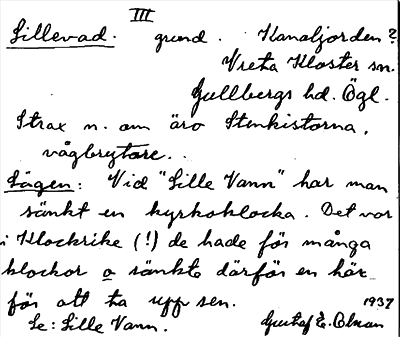 III
Lillevad. grund. Kanaljorden?
Vreta Kloster sn.
Gullbergs hd. Ögl.
Strax n. om äro Stenkistorna,
vågbrytare.
Sägen: Vid "Lille Vann" har man
sänkt en kyrkoklocka. Det var
i Klockrike (!) de hade för många
klockor o sänkte därför en här
för att ta upp sen.
1937
Se: Lille Vann. Gustaf E. Olman